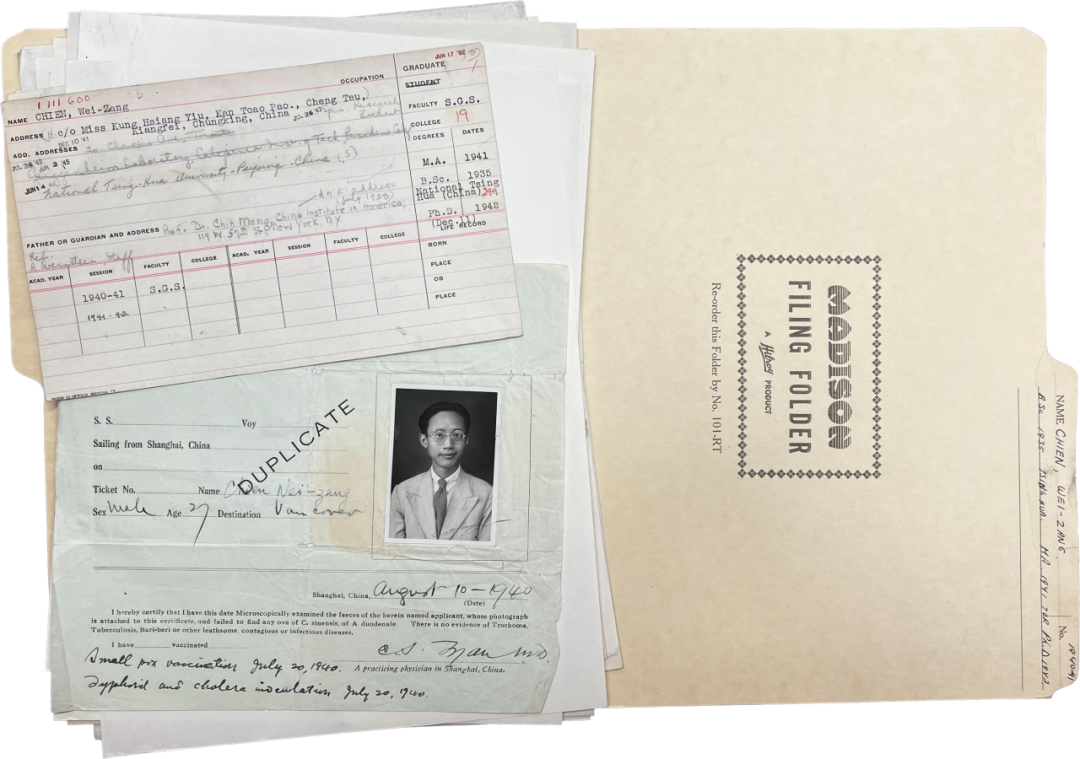 JUN 17 '82
OCCUPATION
GRADUATE
STUDENT
1 111 600
NAME CHIEN, Wei-Zang
FACULTY S.G.S.
ADDRESS c/o Miss Kung Hsiang Yiu, Kan Toao Pao., Cheng Tau,
Kiangfei, Chungking, China
COLLEGE 19
DEC 10 '41
ADD. ADDRESSES
DEGREES DATES
Guggenheim Laboratory, California Inst. of Tech., Pasadena, Cal
M.A. 1941
JUN 14
National Tsing-Hua University - Peiping - China (S)
B.Sc. 1935
National Tsing
Hua (China)
address
(July 1953)
Ph.D. 1942
(Dec. 11)
FATHER OR GUARDIAN AND ADDRESS Ref. Dr. Chih Meng, China Institute in America,
119 W. 57th St. New York, N.Y.
LIFE RECORD
Ref.
Staff
ACAD. YEAR SESSION FACULTY COLLEGE ACAD. YEAR SESSION FACULTY COLLEGE
BORN
PLACE
1940-41 S.G.S.
OB
1941-42
PLACE
S. S. Voy
DUPLICATE
Sailing from Shanghai, China
on
Ticket No. Name Chien Wei-zang
Sex Male Age 27 Destination Vancouver
Shanghai, China, August 10-1940
(Date)
I hereby certify that I have this date Microscopically examined the faeces of the herein named applicant, whose photograph
is attached to this certificate, and failed to find any ova of C. sinensis, of A duodenale There is no evidence of Trachoma,
Tuberculosis, Bari-beri or other leathsome, contagious or infectious diseases.
I have vaccinated
Small pox vaccination July 20, 1940.
A practicing physician in Shanghai, China.
Typhoid and cholera inoculation July 20, 1940.
MADISON
FILING FOLDER
A Hilroy PRODUCT
Re-order this Folder by No. 101-RT
NAME CHIEN, WEI-ZANG No. 1940-41
B.Sc. 1935 TSING HUA. MA 1941 TOR Ph.D 1942